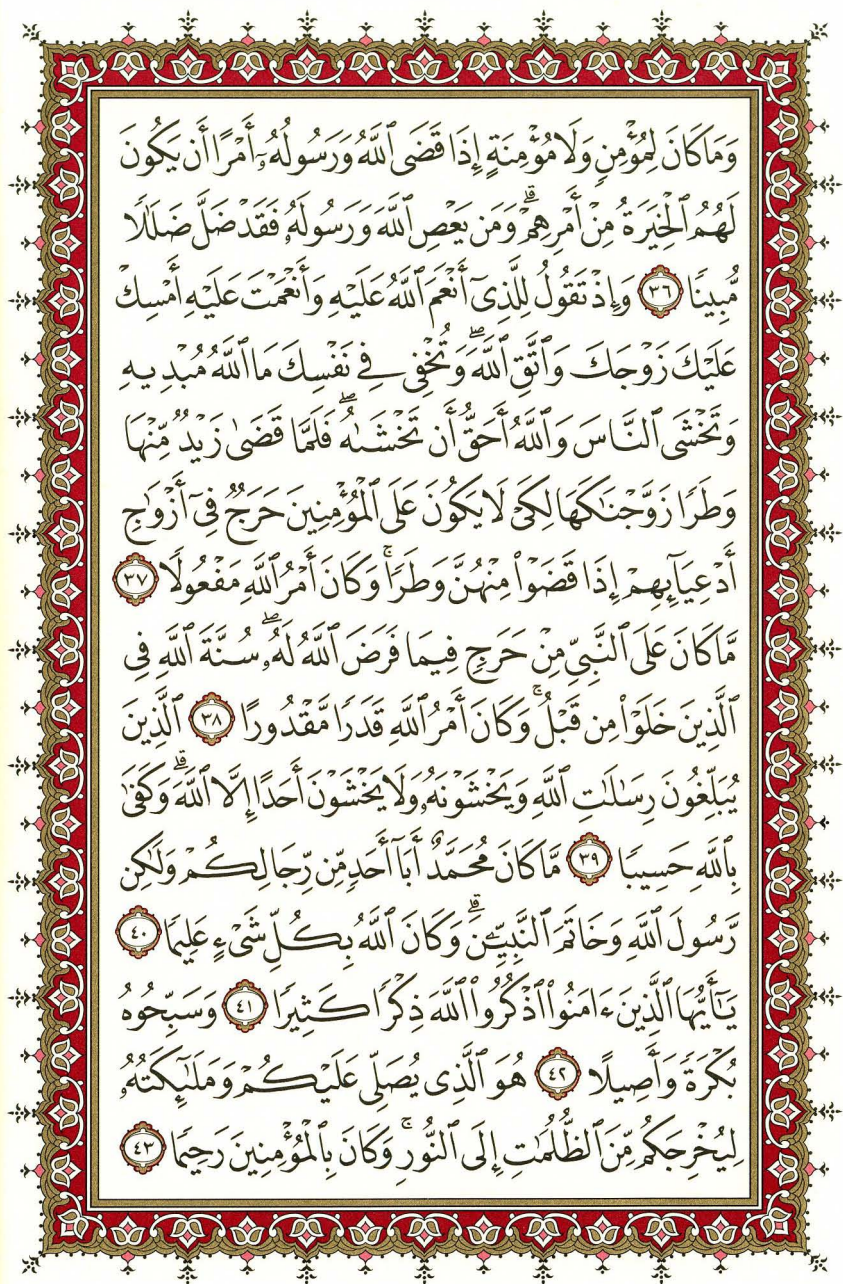 وَمَا كَانَ لِمُؤْمِنٍ وَلَا مُؤْمِنَةٍ إِذَا قَضَى ٱللَّهُ وَرَسُولُهُۥٓ أَمْرًا أَن يَكُونَ
لَهُمُ ٱلْخِيَرَةُ مِنْ أَمْرِهِمْ ۗ وَمَن يَعْصِ ٱللَّهَ وَرَسُولَهُۥ فَقَدْ ضَلَّ ضَلَـٰلًا
مُّبِينًا ٣٦ وَإِذْ تَقُولُ لِلَّذِىٓ أَنْعَمَ ٱللَّهُ عَلَيْهِ وَأَنْعَمْتَ عَلَيْهِ أَمْسِكْ
عَلَيْكَ زَوْجَكَ وَٱتَّقِ ٱللَّهَ ۖ وَتُخْفِى فِى نَفْسِكَ مَا ٱللَّهُ مُبْدِيهِ
وَتَخْشَى ٱلنَّاسَ وَٱللَّهُ أَحَقُّ أَن تَخْشَىٰهُ ۖ فَلَمَّا قَضَىٰ زَيْدٌ مِّنْهَا
وَطَرًا زَوَّجْنَـٰكَهَا لِكَىْ لَا يَكُونَ عَلَى ٱلْمُؤْمِنِينَ حَرَجٌ فِىٓ أَزْوَٰجِ
أَدْعِيَآئِهِمْ إِذَا قَضَوْا۟ مِنْهُنَّ وَطَرًا ۚ وَكَانَ أَمْرُ ٱللَّهِ مَفْعُولًا ٣٧
مَّا كَانَ عَلَى ٱلنَّبِىِّ مِنْ حَرَجٍ فِيمَا فَرَضَ ٱللَّهُ لَهُۥ ۖ سُنَّةَ ٱللَّهِ فِى
ٱلَّذِينَ خَلَوْا۟ مِن قَبْلُ ۚ وَكَانَ أَمْرُ ٱللَّهِ قَدَرًا مَّقْدُورًا ٣٨ ٱلَّذِينَ
يُبَلِّغُونَ رِسَـٰلَـٰتِ ٱللَّهِ وَيَخْشَوْنَهُۥ وَلَا يَخْشَوْنَ أَحَدًا إِلَّا ٱللَّهَ ۗ وَكَفَىٰ
بِٱللَّهِ حَسِيبًا ٣٩ مَّا كَانَ مُحَمَّدٌ أَبَآ أَحَدٍ مِّن رِّجَالِكُمْ وَلَـٰكِن
رَّسُولَ ٱللَّهِ وَخَاتَمَ ٱلنَّبِيِّـۧنَ ۗ وَكَانَ ٱللَّهُ بِكُلِّ شَىْءٍ عَلِيمًا ٤٠
يَـٰٓأَيُّهَا ٱلَّذِينَ ءَامَنُوا۟ ٱذْكُرُوا۟ ٱللَّهَ ذِكْرًا كَثِيرًا ٤١ وَسَبِّحُوهُ
بُكْرَةً وَأَصِيلًا ٤٢ هُوَ ٱلَّذِى يُصَلِّى عَلَيْكُمْ وَمَلَـٰٓئِكَتُهُۥ
لِيُخْرِجَكُم مِّنَ ٱلظُّلُمَـٰتِ إِلَى ٱلنُّورِ ۚ وَكَانَ بِٱلْمُؤْمِنِينَ رَحِيمًا ٤٣